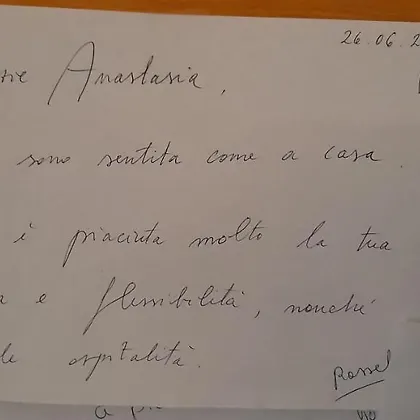 26.06.2
Anastasia,
sono sentita come a casa.
è piaciuta molto la tua
a e flessibilità, nonché
le ospitalità.
Rossel
a pr